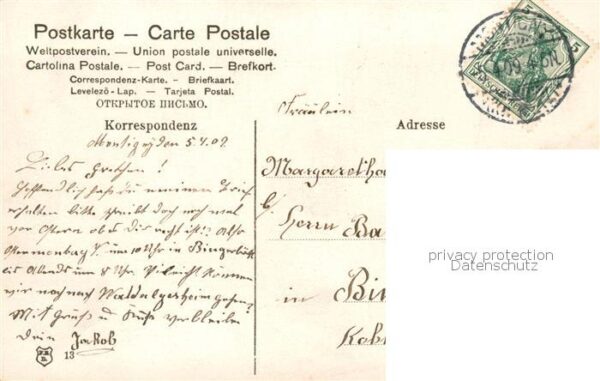 Postkarte – Carte Postale
Weltpostverein. – Union postale universelle.
Cartolina Postale. – Post Card. – Brefkort.
Correspondenz-Karte. – Briefkaart.
Levelező-Lap. – Tarjeta Postal.
ОТКРЫТОЕ ПИСЬМО.
Korrespondenz
Adresse
Montigny den 5.4.09.
Liebes Gretchen!
Hoffentlich hast du meinen Brief
erhalten bitte schreibt doch noch mal
vor Ostern ob es Dir recht ist!? Also
um 10 Uhr in Bingerbrück
bis Abends um 8 Uhr. Vileicht können
wir noch nach Waldalgesheim gehen?
Mit Gruß u Kuß verbleibe
Dein Jakob
13
Fräulein
Margaretha
b/ Herrn Ba
in Bin
5
5
privacy protection
Datenschutz